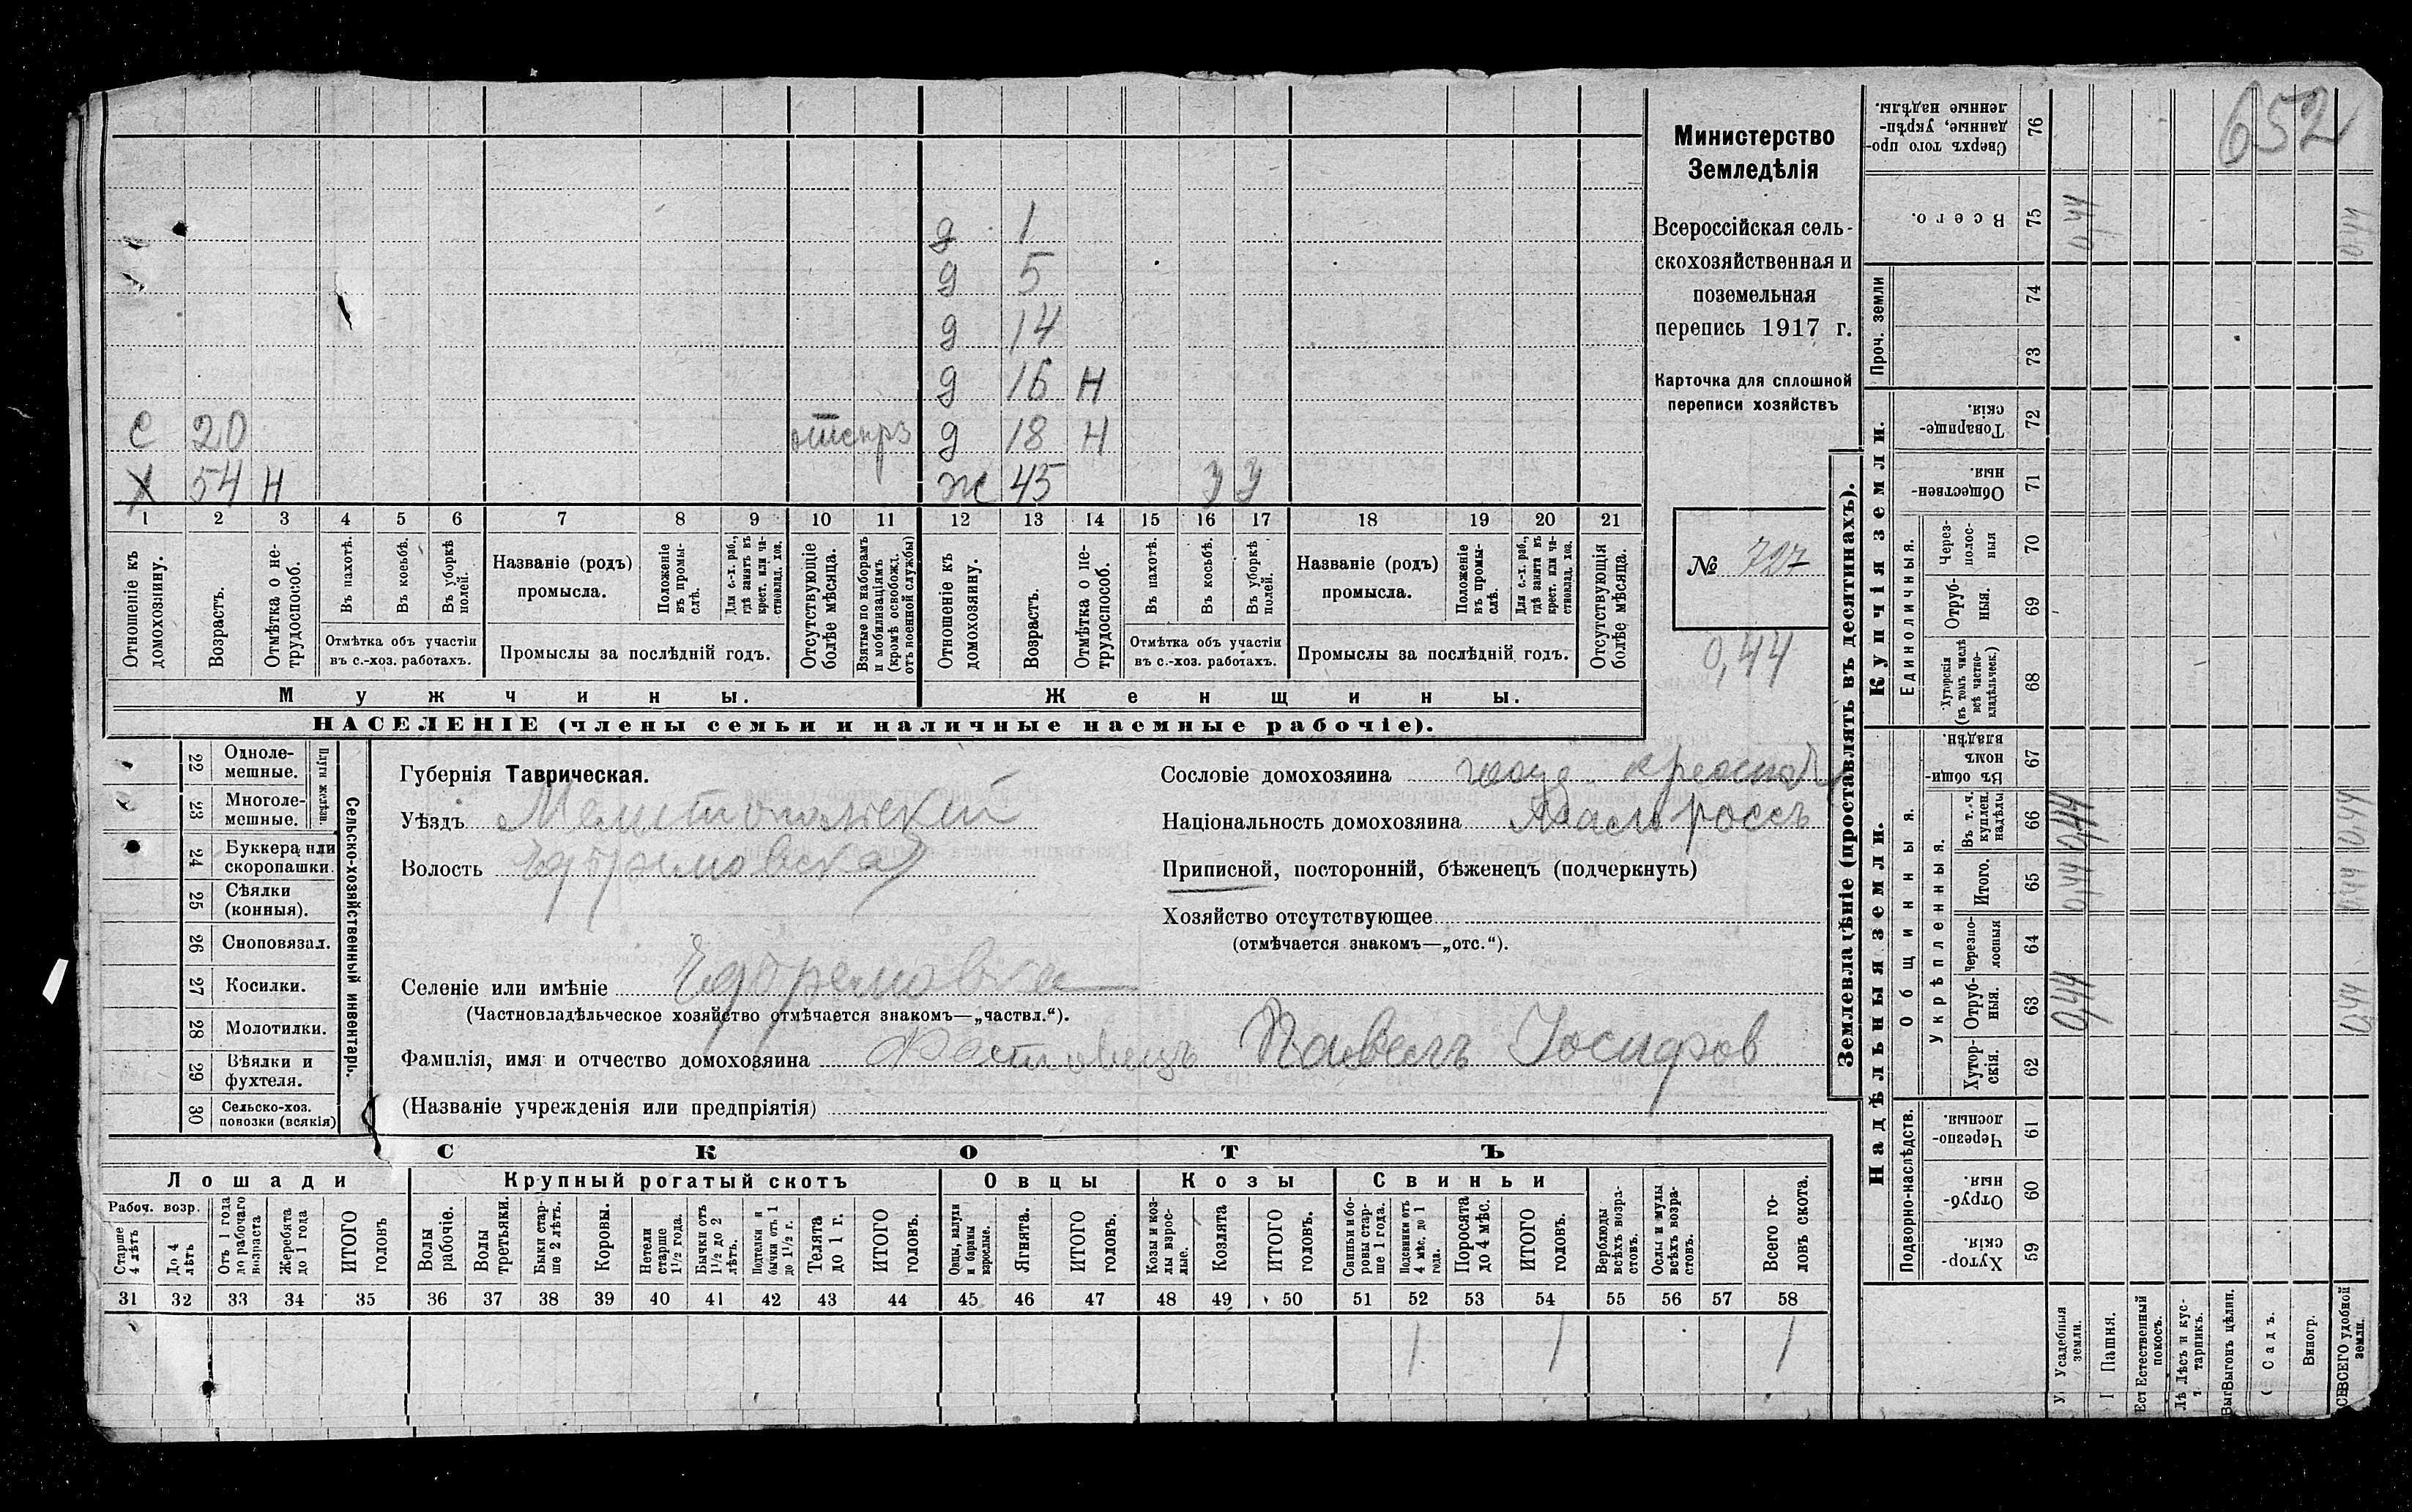 652
Министерство
Земледѣлія
Всероссійская сель-
скохозяйственная и
поземельная
перепись 1917 г.
Карточка для сплошной
переписи хозяйствъ
№ 727
0,44
д 1
д 5
д 14
д 16 Н
С 20 д 18 Н
Х 54 Н ж 45 У У
1 2 3 4 5 6 7 8 9 10 11 12 13 14 15 16 17 18 19 20 21
Отношеніе къ домохозяину.
Возрастъ.
Отмѣтка о не-трудоспособ.
Въ пахотѣ.
Въ косьбѣ.
Въ уборкѣ полей.
Отмѣтка объ участіи
въ с.-хоз. работахъ.
Названіе (родъ)
промысла.
Положеніе въ промы-слѣ.
Для с.-х. раб., гдѣ занятъ въ крест. или ча-стновлад. хоз.
Промыслы за послѣдній годъ.
Отсутствующіе болѣе мѣсяца.
Взятые по наборамъ и мобилизаціямъ (кромѣ освобожд. отъ военной службы)
Отношеніе къ домохозяину.
Возрастъ.
Отмѣтка о не-трудоспособ.
Въ пахотѣ.
Въ косьбѣ.
Въ уборкѣ полей.
Отмѣтка объ участіи
въ с.-хоз. работахъ.
Названіе (родъ)
промысла.
Положеніе въ промы-слѣ.
Для с.-х. раб., гдѣ занята въ крест. или ча-стновлад. хоз.
Промыслы за послѣдній годъ.
Отсутствующія болѣе мѣсяца.
Мужчины. Женщины.
НАСЕЛЕНІЕ (члены семьи и наличные наемные рабочіе).
Сельско-хозяйственный инвентарь.
Плуги желѣзн.
22 Одноле-мешные.
23 Многоле-мешные.
24 Буккера или скоропашки.
25 Сѣялки (конныя).
26 Сноповязал.
27 Косилки.
28 Молотилки.
29 Вѣялки и фухтеля.
30 Сельско-хоз. повозки (всякія)
Губернія Таврическая.
Уѣздъ Мелитопольскій
Волость Ефремовская
Селеніе или имѣніе Ефремовка
(Частновладѣльческое хозяйство отмѣчается знакомъ—„частвл.“).
Фамилія, имя и отчество домохозяина Павелъ Іосифов
(Названіе учрежденія или предпріятія)
Сословіе домохозяина
Національность домохозяина росс
Приписной, посторонній, бѣженецъ (подчеркнуть)
Хозяйство отсутствующее
(отмѣчается знакомъ—„отс.“).
СКОТЪ
Лошади Крупный рогатый скотъ Овцы Козы Свиньи
Рабоч. возр.
Старше 4 лѣтъ
До 4 лѣтъ
Отъ 1 года до рабочаго возраста
Жеребята до 1 года
ИТОГО головъ
Волы рабочіе.
Волы третьяки.
Быки стар-ше 2 лѣтъ.
Коровы.
Нетели старше 1½ года.
Бычки отъ 1½ до 2 лѣтъ.
Подтелки и бычки отъ 1 до 1½ г.
Телята до 1 г.
ИТОГО головъ.
Овцы, валухи и бараны взрослые.
Ягнята.
ИТОГО головъ.
Козы и коз-лы взрос-лые.
Козлята
ИТОГО головъ.
Свиньи и бо-ровы стар-ше 1 года.
Подсвинки отъ 4 мѣс. до 1 года.
Поросята до 4 мѣс.
ИТОГО головъ.
Верблюды всѣхъ возра-стовъ.
Ослы и мулы всѣхъ возра-стовъ.
Всего го-ловъ скота.
31 32 33 34 35 36 37 38 39 40 41 42 43 44 45 46 47 48 49 50 51 52 53 54 55 56 57 58
1 1 1
Землевладѣніе (проставлять въ десятинахъ).
Купчія земли.
Надѣльныя земли.
Сверхъ того про-данные, укрѣп-ленные надѣлы. 76
Всего. 75 0,44 0,44
Проч. земли 74
73
Товарище-скія. 72
Обществен-ныя. 71
Единоличныя.
Через-полос-ныя 70
Отруб-ныя. 69
Хуторскія (въ томъ числѣ всѣ частно-владѣльческ.) 68
Общинныя.
Въ общин-номъ владѣн. 67
Укрѣпленныя.
Въ т. ч. куплен. надѣлы 66 0,44 0,44
Итого. 65 0,44 0,44
Черезпо-лосныя 64
Отруб-ныя. 63 0,44 0,44
Хутор-скія. 62
Подворно-наслѣдств.
Черезпо-лосныя. 61
Отруб-ныя 60
Хутор-скія. 59
Усадебныя земли.
Пашня.
Естественный покосъ.
Лѣсъ и кус-тарникъ.
Выгонъ цѣлин.
Садъ.
Виногр.
ВСЕГО удобной земли.